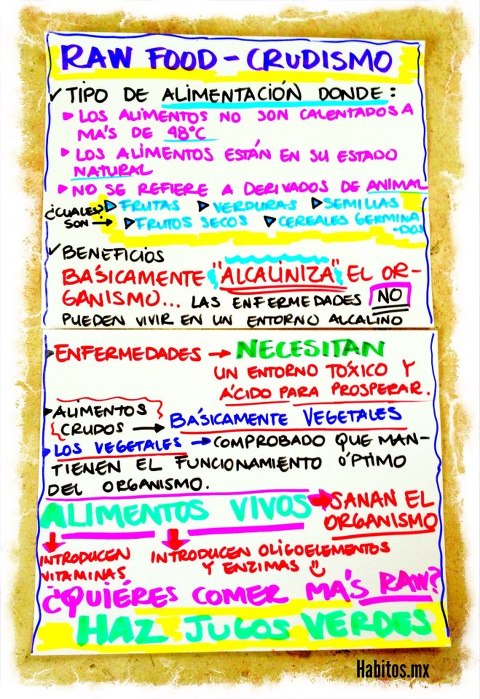 RAW FOOD - CRUDISMO
✓ TIPO DE ALIMENTACIÓN DONDE:
▷ LOS ALIMENTOS NO SON CALENTADOS A
MÁS DE 48°C
▷ LOS ALIMENTOS ESTÁN EN SU ESTADO
NATURAL
▷ NO SE REFIERE A DERIVADOS DE ANIMAL
¿CUALES SON → ▷ FRUTAS ▷ VERDURAS ▷ SEMILLAS
▷ FRUTOS SECOS ▷ CEREALES GERMINA-
DOS
✓ BENEFICIOS
BÁSICAMENTE "ALCALINIZA" EL OR-
GANISMO... LAS ENFERMEDADES NO
PUEDEN VIVIR EN UN ENTORNO ALCALINO
▷ ENFERMEDADES → NECESITAN
UN ENTORNO TÓXICO Y
ÁCIDO PARA PROSPERAR.
▷ ALIMENTOS
CRUDOS → BÁSICAMENTE VEGETALES
▷ LOS VEGETALES → COMPROBADO QUE MAN-
TIENEN EL FUNCIONAMIENTO ÓPTIMO
DEL ORGANISMO.
ALIMENTOS VIVOS → SANAN EL
ORGANISMO
INTRODUCEN
VITAMINAS
INTRODUCEN OLIGOELEMENTOS
Y ENZIMAS
¿QUIÉRES COMER MÁS RAW?
HAZ JUGOS VERDES
Habitos.mx